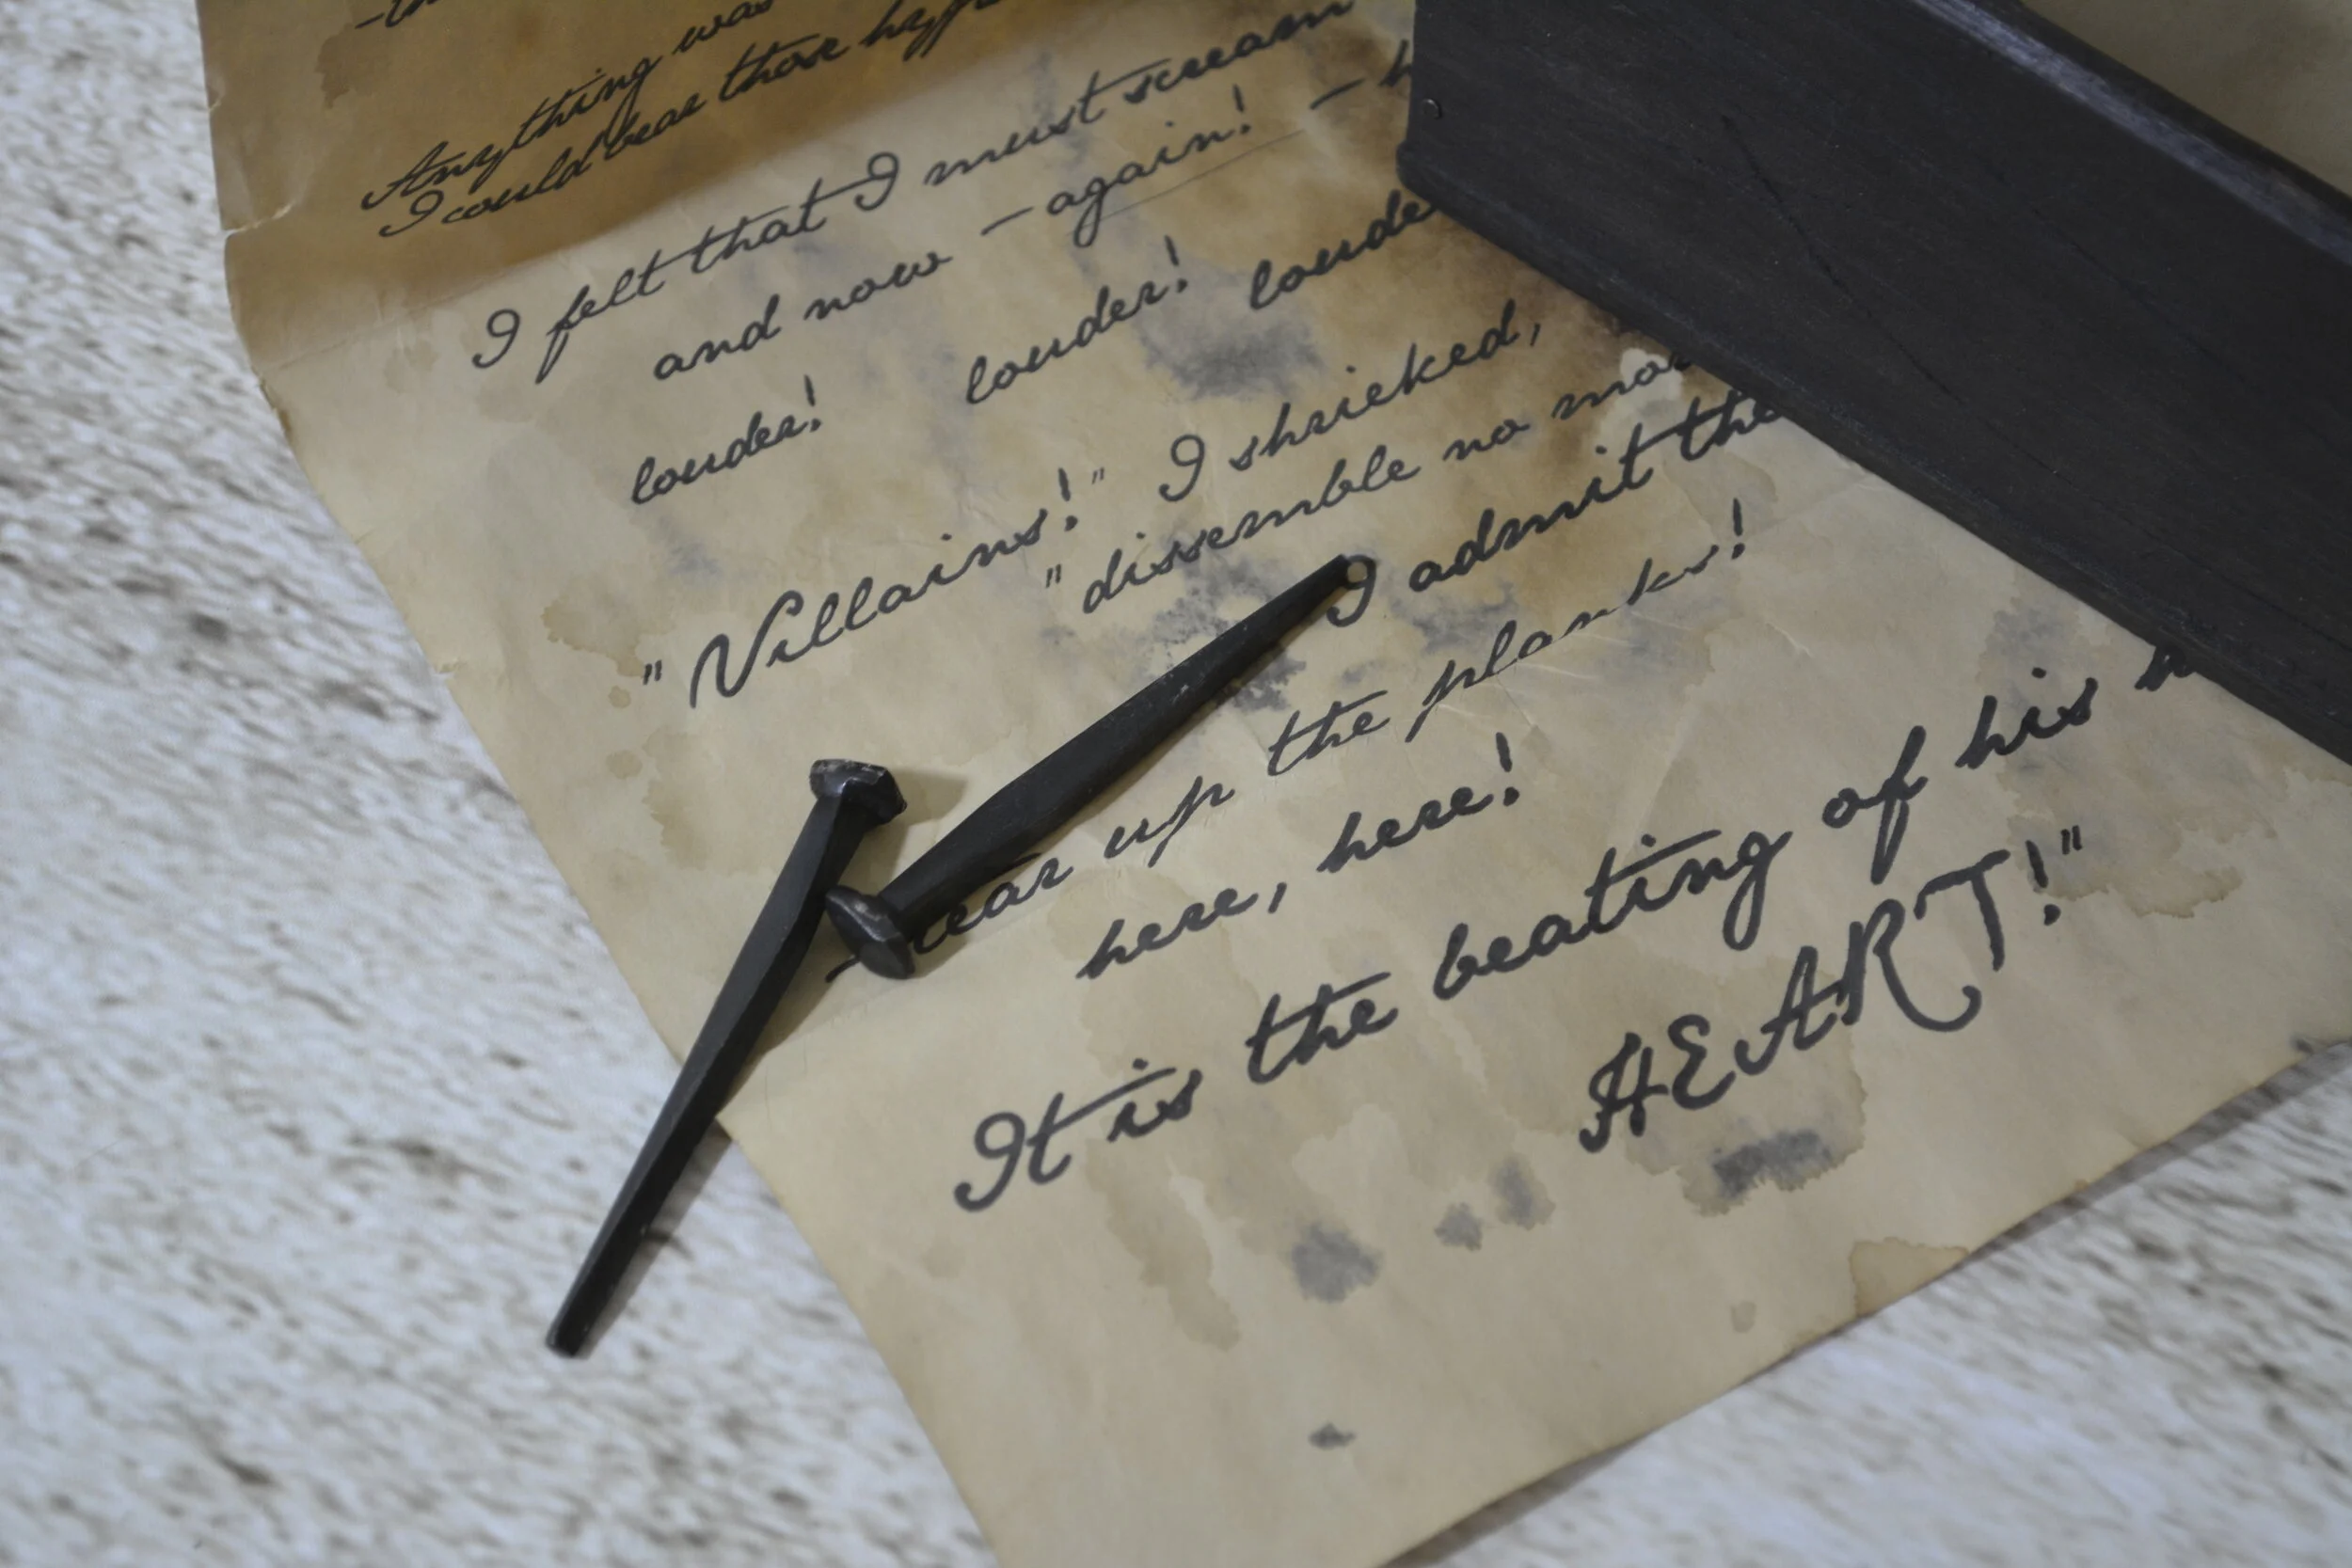 Anything was
I could bear those
I felt that I must scream
and now —again! —
louder! louder!
louder!
"Villains!" I shrieked,
"dissemble no
I admit the
tear up the planks!
here, here!
It is the beating of his
HEART!"